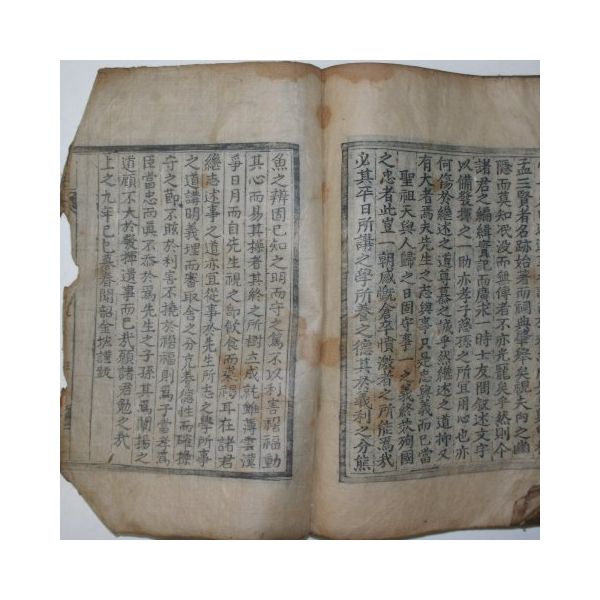 孟三賢者名跡始著而祠典畢擧矣視夫向之幽
隱而莫知泯没而無傳者不亦光寵矣乎然則今
諸君之編緝實記而廣求一時士友間叙述文字
以備發揮之一助亦孝子慈孫之所宜用心也亦
何傷於繼述之道尊慕之誠乎代繼述之道抑又
有大者焉夫先生之志與事只是忠與義而已當
聖祖天與人歸之日固守事一之義終茨殉國
之忠者此豈一朝感慨倉卒憤激者之所能爲哉
必其平日所講之學所養之德其於義利之分熊
魚之辨固已知之明而守之篤不以利害禍福動
其心而易其操者其終之所樹立成就雖薄雲漢
爭日月而自先生視之卽飮食而裘褐耳在諸君
繼志述事之道亦宜從事於先生所志之學所事
之道講明義理而審取舍之分充養德性而確操
守之觀不眩於利害不撓於禍福則爲子當孝爲
臣當忠而眞不忝於爲先生之子孫其爲闡揚之
道顧不大於發揮遺事而已哉願諸君勉之哉
上之九年己巳暮春聞韶金坡謹跋